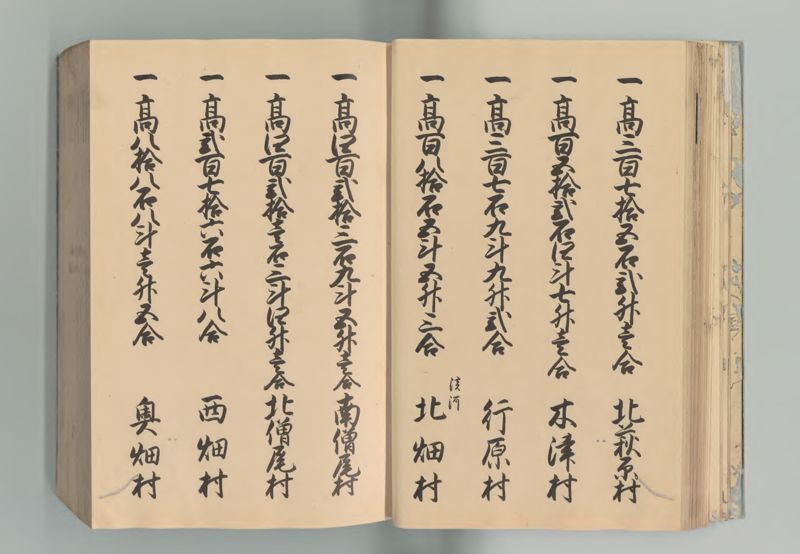 一高三百七拾五石弐升壱合 北萩原村
一高百五拾弐石四斗七升壱合 木津村
一高三百七石九斗九升弐合 行原村
一高百八拾石五斗五升三合 淡河 北畑村
一高四百弐拾三石九斗五升壱合 南僧尾村
一高四百弐拾壱石三斗四升壱合 北僧尾村
一高弐百七拾六石六斗八合 西畑村
一高八拾八石八斗壱升五合 奥畑村